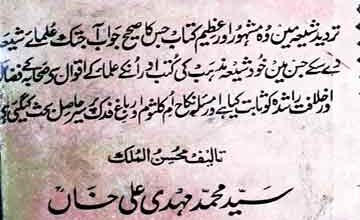 تردید شیعہ میں وہ مشہور اور عظیم کتاب جس کا صحیح جواب آجتک علمائے شیعہ
دے سکے جس میں خود شیعہ مذہب کی کتب اور انکے علماء کے اقوال صحابہ کے فضائل
اور خلافت راشدہ کو ثابت کیا ہے اور مسئلہ نکاح ام کلثوم اور باغ فدک پر سیر حاصل بحث کیگئی ہے
تالیف محسن الملک
سید محمد مہدی علی خاں